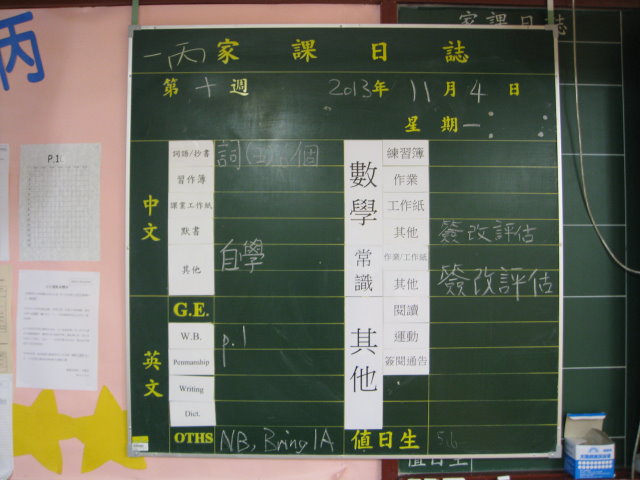 丙
家課日誌
一丙家課日誌
第十週 2013年11月4日
星期一
中文
詞語/抄書 詞(五):個
習作簿
課業工作紙
默書
其他 自學
英文
G.E.
W.B. p.1
Penmanship
Writing
Dict.
OTHS NB, Bring IA
數學
練習簿
作業
工作紙
其他 簽改評估
常識
作業/工作紙
其他 簽改評估
其他
閱讀
運動
簽閱通告
值日生 5,6
P.1
值日生